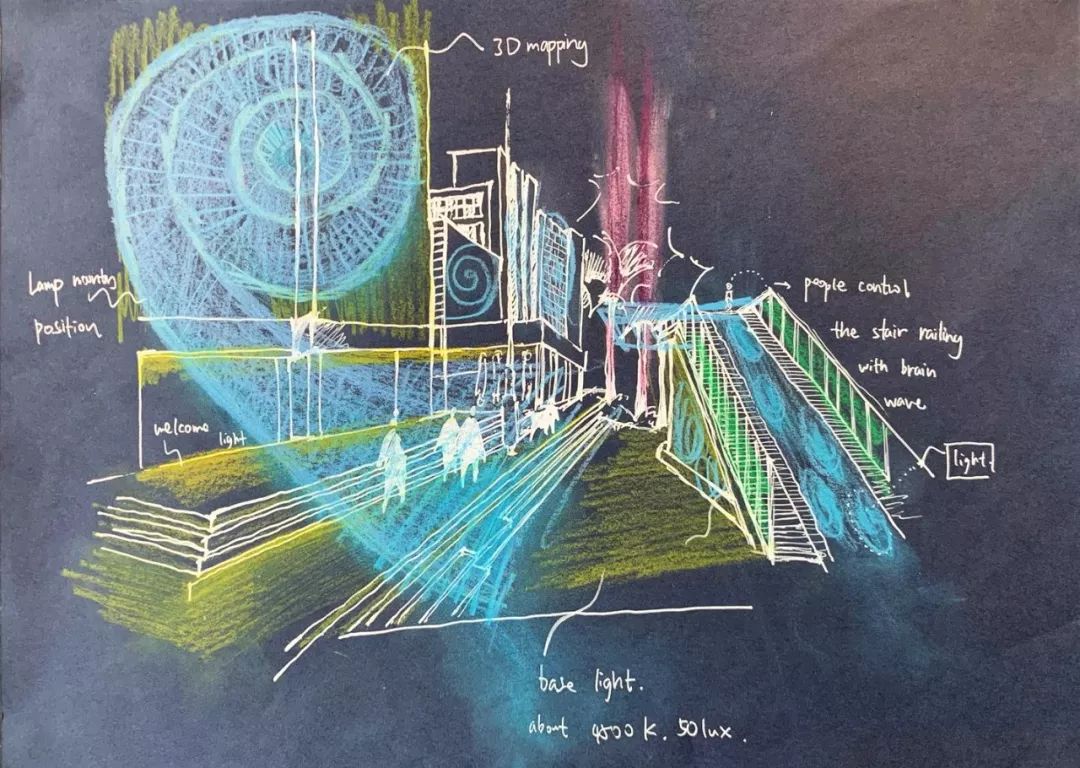 3D mapping
Lamp
position
people control
the stair railing
with brain
wave
welcome light
light
base light.
about 4500 K. 50 lux.